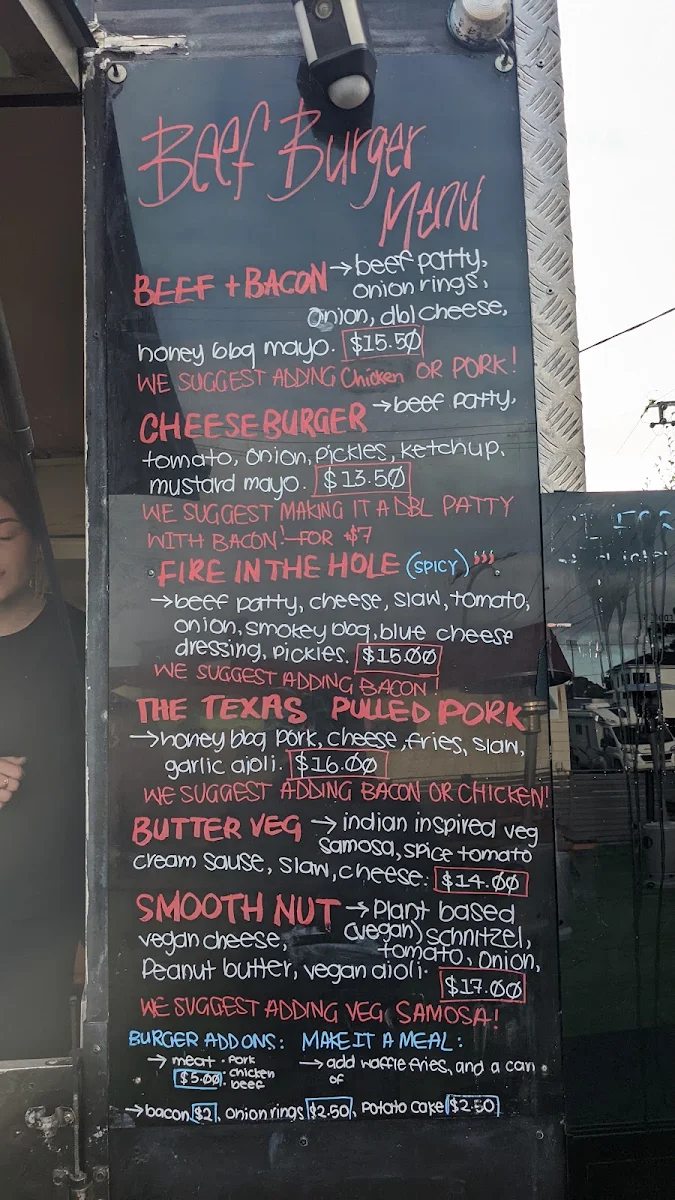 Beef Burger
Menu
BEEF + BACON → beef patty,
onion rings,
onion, dbl cheese,
honey bbq mayo. $15.50
WE SUGGEST ADDING Chicken OR PORK!
CHEESEBURGER → beef patty,
tomato, onion, pickles, ketchup.
mustard mayo. $13.50
WE SUGGEST MAKING IT A DBL PATTY
WITH BACON! FOR $7
FIRE IN THE HOLE (SPICY)
→ beef patty, cheese, slaw, tomato,
onion, smokey bbq, blue cheese
dressing, pickles. $15.00
WE SUGGEST ADDING BACON!
THE TEXAS PULLED PORK
→ honey bbq pork, cheese, fries, slaw,
garlic aioli. $16.00
WE SUGGEST ADDING BACON OR CHICKEN!
BUTTER VEG → indian inspired veg
samosa, spice tomato
cream sause, slaw, cheese. $14.00
SMOOTH NUT → Plant based
(vegan) schnitzel,
vegan cheese, tomato, onion,
Peanut butter, vegan aioli. $17.00
WE SUGGEST ADDING VEG SAMOSA!
BURGER ADD ONS: MAKE IT A MEAL:
→ meat · Pork → add waffle fries, and a can
$5.00 · chicken of
· beef
→ bacon $2, onion rings $2.50, Potato cake $2.50